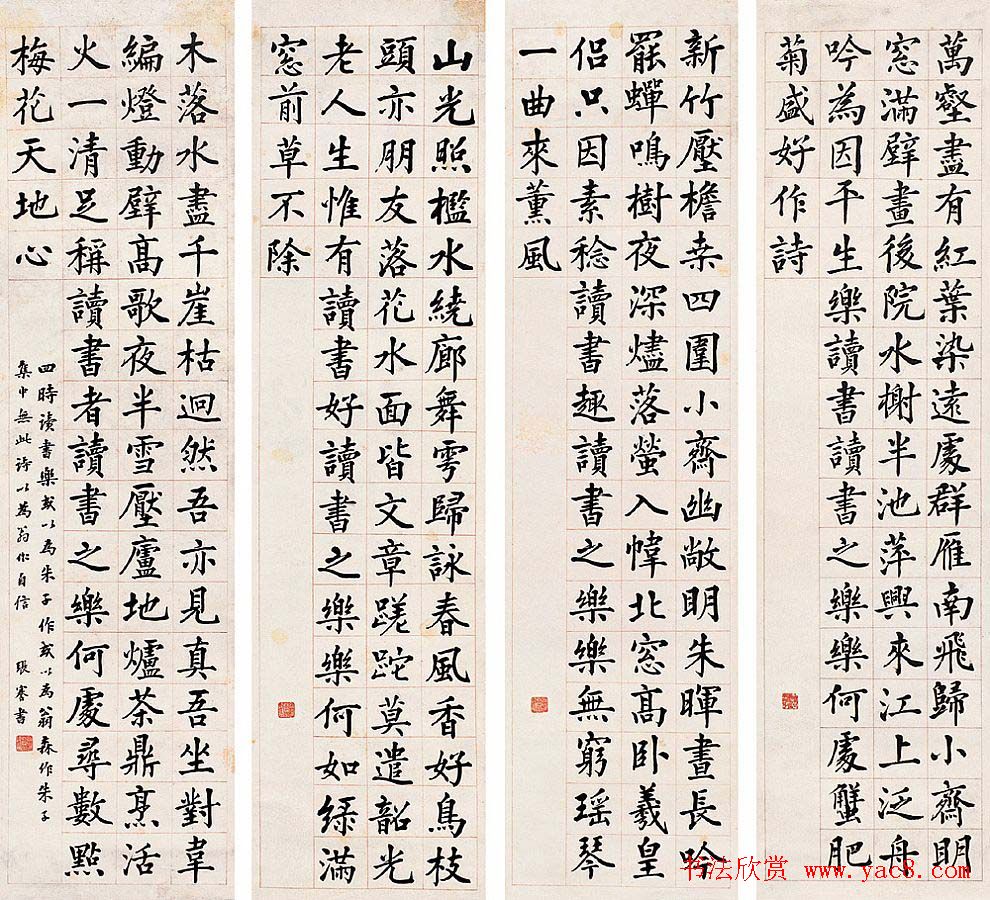 萬壑盡有紅葉染遠處群雁南飛歸小齋明
窓滿壁畫後院水榭半池萍興來江上泛舟
吟為因平生樂讀書讀書之樂樂何處蟹肥
菊盛好作詩
新竹壓檐桒四圍小齋幽敞明朱暉晝長吟
罷蟬鳴樹夜深燼落螢入幃北窓高卧羲皇
侶只因素稔讀書趣讀書之樂樂無窮瑶琴
一曲來薰風
山光照檻水繞廊舞雩歸詠春風香好鳥枝
頭亦朋友落花水面皆文章蹉跎莫遣韶光
老人生惟有讀書好讀書之樂樂何如緑滿
窓前草不除
木落水盡千崖枯迥然吾亦見真吾坐對韋
編燈動壁髙歌夜半雪壓廬地爐茶鼎烹活
火一清足稱讀書者讀書之樂何處尋數點
梅花天地心
四時讀書樂或以為朱子作或以為翁森作朱子
集中無此詩以為翁作自信 張謇書
书法欣赏 www.yac8.com